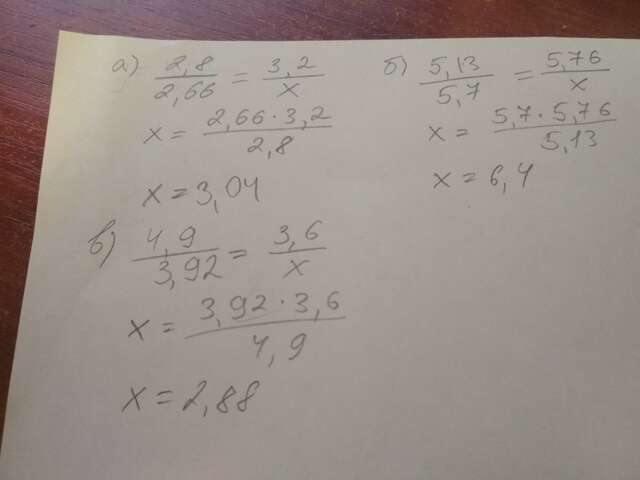 а) 2,8/2,66 = 3,2/x
x = 2,66·3,2/2,8
x = 3,04
б) 5,13/5,7 = 5,76/x
x = 5,7·5,76/5,13
x = 6,4
в) 4,9/3,92 = 3,6/x
x = 3,92·3,6/4,9
x = 2,88